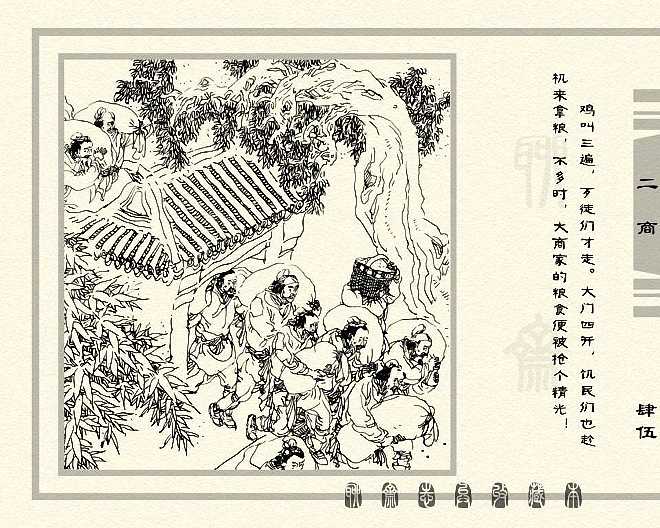 鸡叫三遍，歹徒们才走。大门四开，饥民们也趁
机来拿粮，不多时，大商家的粮食便被抢个精光！
二商
肆伍